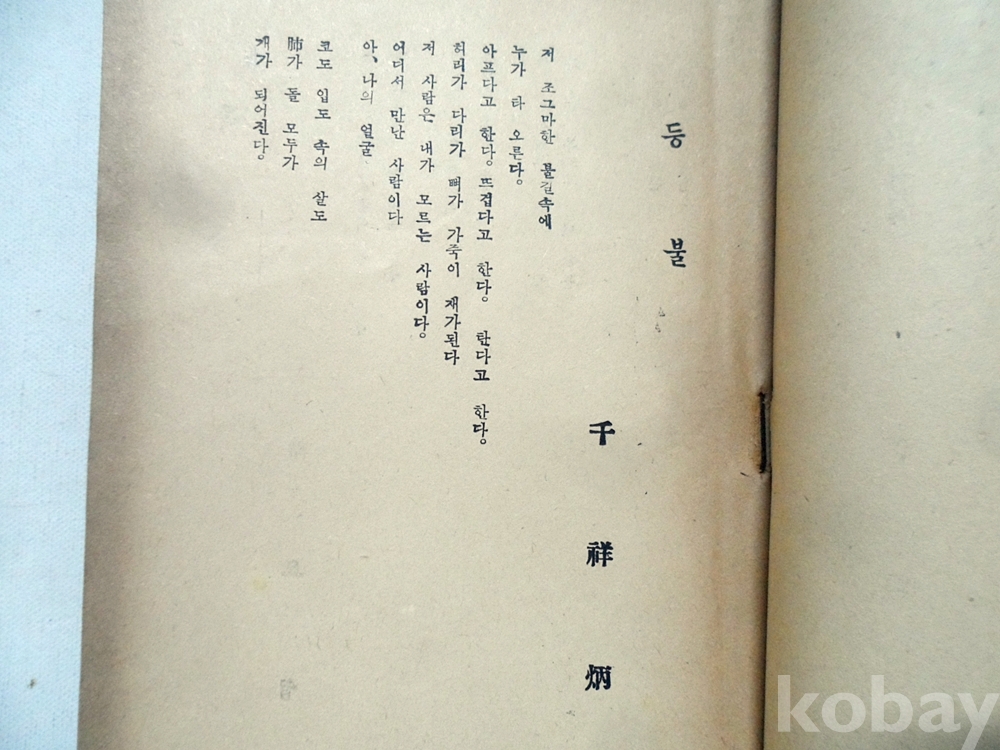 등불
千祥炳
저 조그마한 불길속에
누가 타 오른다。
아프다고 한다。뜨겁다고 한다。 탄다고 한다。
허리가 다리가 뼈가 가죽이 재가된다
저 사람은 내가 모르는 사람이다。
어디서 만난 사람이다
아、나의 얼굴
코도 입도 속의 살도
肺가 돌 모두가
재가 되어진다。
kobay